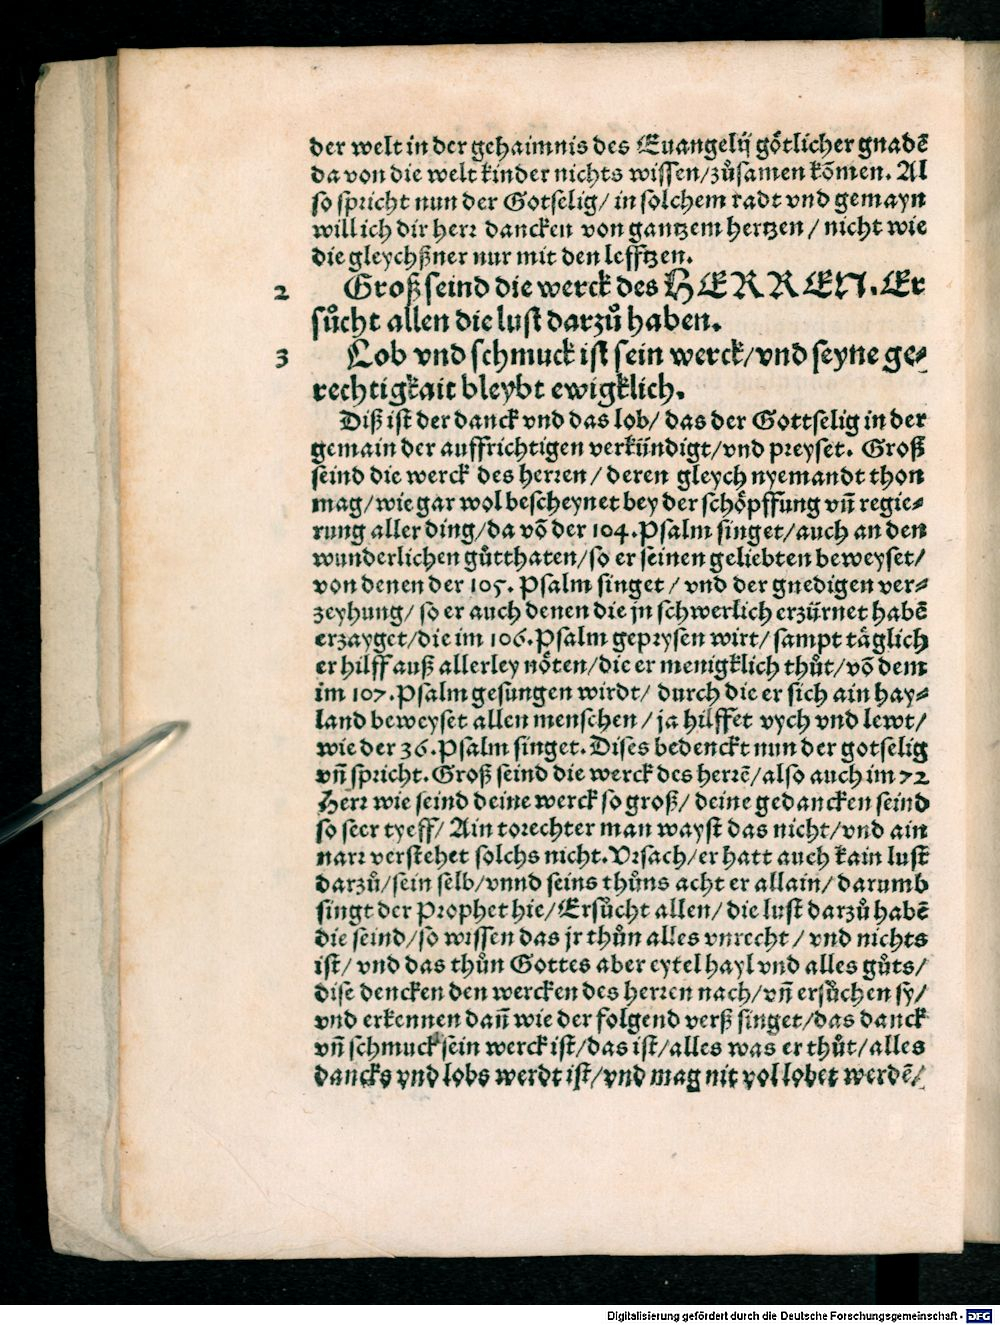 der welt in der gehaimnis des Euangelij götlicher gnadẽ
da von die welt kinder nichts wissen/zůsamen kõmen. Al
so spricht nun der Gotselig/ in solchem radt vnd gemayn
will ich dir herr dancken von gantzem hertzen/ nicht wie
die gleychßner nur mit den lefftzen.
2 Groß seind die werck des HERREN. Er
sůcht allen die lust darzů haben.
3 Lob vnd schmuck ist sein werck/vnd seyne ge⸗
rechtigkait bleybt ewigklich.
Diß ist der danck vnd das lob/ das der Gottselig in der
gemain der auffrichtigen verkündigt/vnd preyset. Groß
seind die werck des herren/ deren gleych nyemandt thon
mag/wie gar wol bescheynet bey der schöpffung vñ regie⸗
rung aller ding/da võ der 104. Psalm singet/auch an den
wunderlichen gůtthaten/so er seinen geliebten beweyset/
von denen der 105. Psalm singet/ vnd der gnedigen ver⸗
zeyhung/ so er auch denen die jn schwerlich erzürnet habẽ
erzayget/die im 106. Psalm geprysen wirt/ sampt täglich
er hilff auß allerley nöten/die er menigklich thůt/võ dem
im 107. Psalm gesungen wirdt/ durch die er sich ain hay⸗
land beweyset allen menschen/ ja hilffet vych vnd lewt/
wie der 36. Psalm singet. Dises bedenckt nun der gotselig
vñ spricht. Groß seind die werck des herrẽ/also auch im 72
Herr wie seind deine werck so groß/ deine gedancken seind
so seer tyeff/ Ain torechter man wayst das nicht/vnd ain
narr verstehet solchs nicht. Vrsach/er hatt auch kain lust
darzů/sein selb/vnnd seins thůns acht er allain/ darumb
singt der Prophet hie/Ersůcht allen/ die lust darzů habẽ
die seind/so wissen das jr thůn alles vnrecht/ vnd nichts
ist/ vnd das thůn Gottes aber eytel hayl vnd alles gůts/
dise dencken den wercken des herren nach/vñ ersůchen sy/
vnd erkennen dañ wie der folgend verß singet/das danck
vñ schmuck sein werck ist/das ist/alles was er thůt/alles
dancks vnd lobs werdt ist/vnd mag nit vol lobet werdẽ/
Digitalisierung gefördert durch die Deutsche Forschungsgemeinschaft - DFG